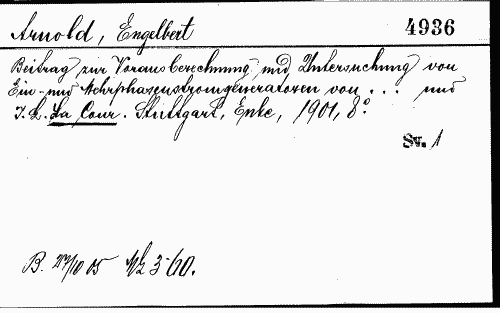 Arnold, Engelbert 4936
Beitrag zur Vorausberechnung und Untersuchung von
Ein- und Mehrphasenstromgeneratoren von ... und
J. L. La Cour. Stuttgart, Enke, 1901, 8°.
Sv. 1
B. 27/10 05 Mk 3.60.